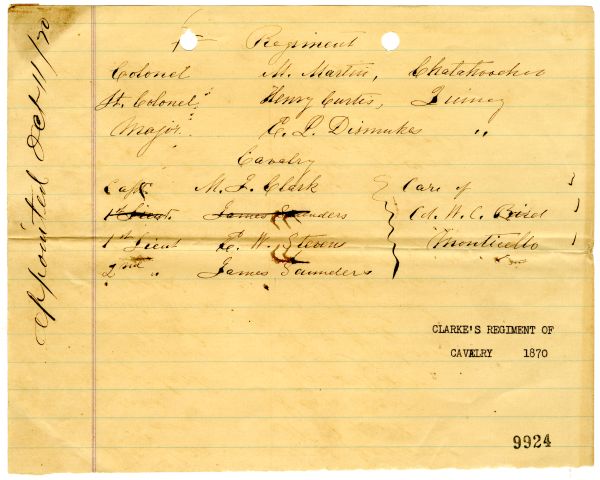 Appointed Oct 11/70
Regiment
Colonel M. Martin, Chatahoochee
Lt. Colonel, Henry Curtis, Quincy
Major. E. P. Dismukes "
Cavalry
Capt. M. J. Clark Care of
1st Lieut. James Saunders Col. W. C. Bird
1st Lieut E. W. Stevens Monticello
2nd " James Saunders
CLARKE'S REGIMENT OF
CAVELRY 1870
9924